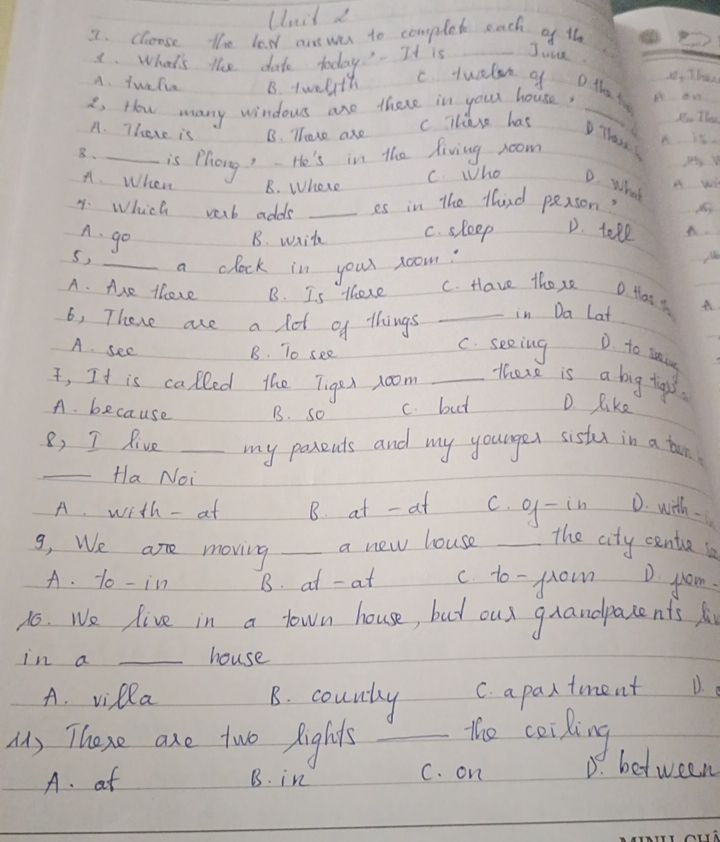 Unit 2
I. Choose the best answer to complete each of the
1. What's the date today? - It is ___ June.
A. twelve B. twelfth C. twelve of D. the
2, How many windows are there in your house? ___
A. There is B. There are C. There has D. There
3. ___ is Phong? - He's in the living room
A. When B. Where C. Who D. What
4. Which verb adds ___ es in the third person?
A. go B. write C. sleep D. tell
5, ___ a clock in your room?
A. Are there B. Is there C. Have there D. Has
6, There are a lot of things ___ in Da Lat
A. see B. To see C. seeing D. to seeing
7, It is called the Tiger room ___ there is a big tiger
A. because B. so C. but D. like
8, I live ___ my parents and my younger sister in a town
___ Ha Noi
A. with - at B. at - at C. of - in D. with -
9, We are moving ___ a new house ___ the city centre
A. to - in B. at - at C. to - from D. from -
10. We live in a town house, but our grandparents
in a ___ house
A. villa B. country C. apartment D.
11, There are two lights ___ the ceiling
A. at B. in C. on D. between
MINH CHÂ